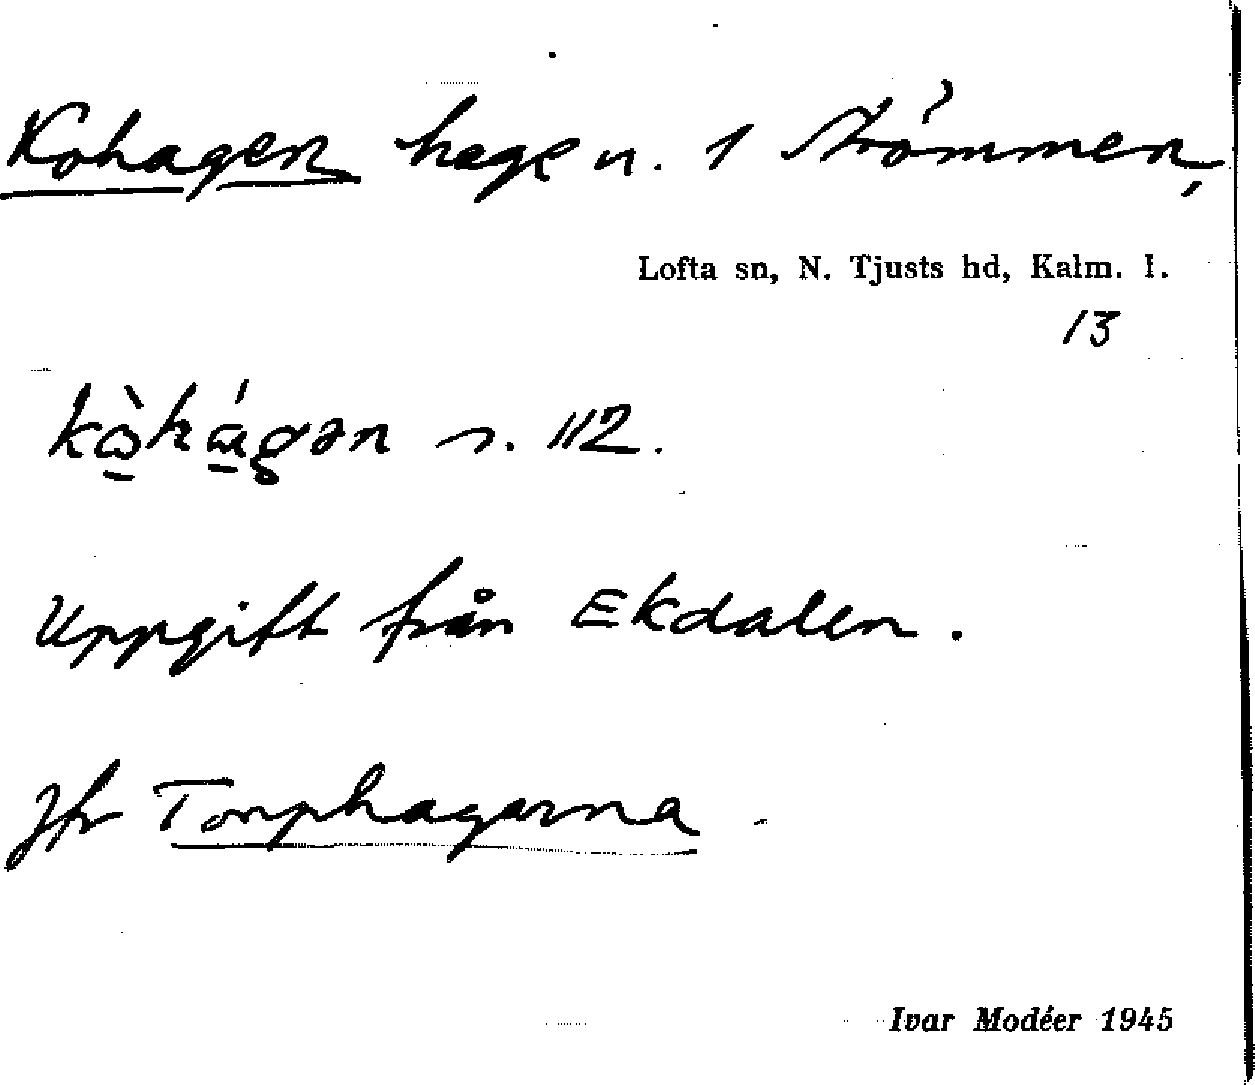 Kohagen hage n. 1 Strömmen,
Lofta sn, N. Tjusts hd, Kalm. l.
13
kɷ̠̀hɑ̠́gən s. 112.
Uppgift från Ekdalen.
Jfr Torphagarna.
Ivar Modéer 1945